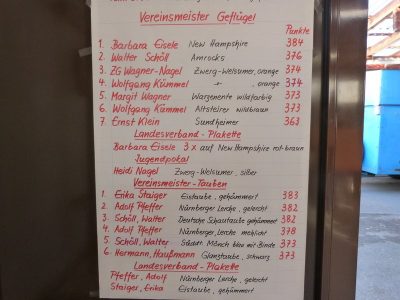 Vereinsmeister Geflügel
Punkte
1. Barbara Eisele New Hampshire 384
2. Walter Schöll Amrocks 376
3. ZG Wagner-Nagel Zwerg-Welsumer, orange 374
4. Wolfgang Kümmel -"- , orange 374
5. Margit Wagner Warzenente wildfarbig 373
6. Wolfgang Kümmel Altsteirer wildbraun 373
7. Ernst Klein Sundheimer 363
Landesverband-Plakette
Barbara Eisele 3 x auf New Hampshire rot-braun
Jugendpokal
Heidi Nagel Zwerg-Welsumer, silber
Vereinsmeister-Tauben
1. Erika Staiger Eistaube, gehämmert 383
2. Adolf Pfeffer Nürnberger Lerche, gelercht 382
3. Schöll, Walter Deutsche Schautaube gehämmert 382
4. Adolf Pfeffer Nürnberger Lerche mehlicht 378
5. Schöll, Walter Südd. Mönch blau mit Binde 373
6. Hermann, Haußmann Glanztaube, schwarz 373
Landesverband-Plakette
Pfeffer, Adolf Nürnberger Lerche, gelercht
Staiger, Erika Eistaube, gehämmert